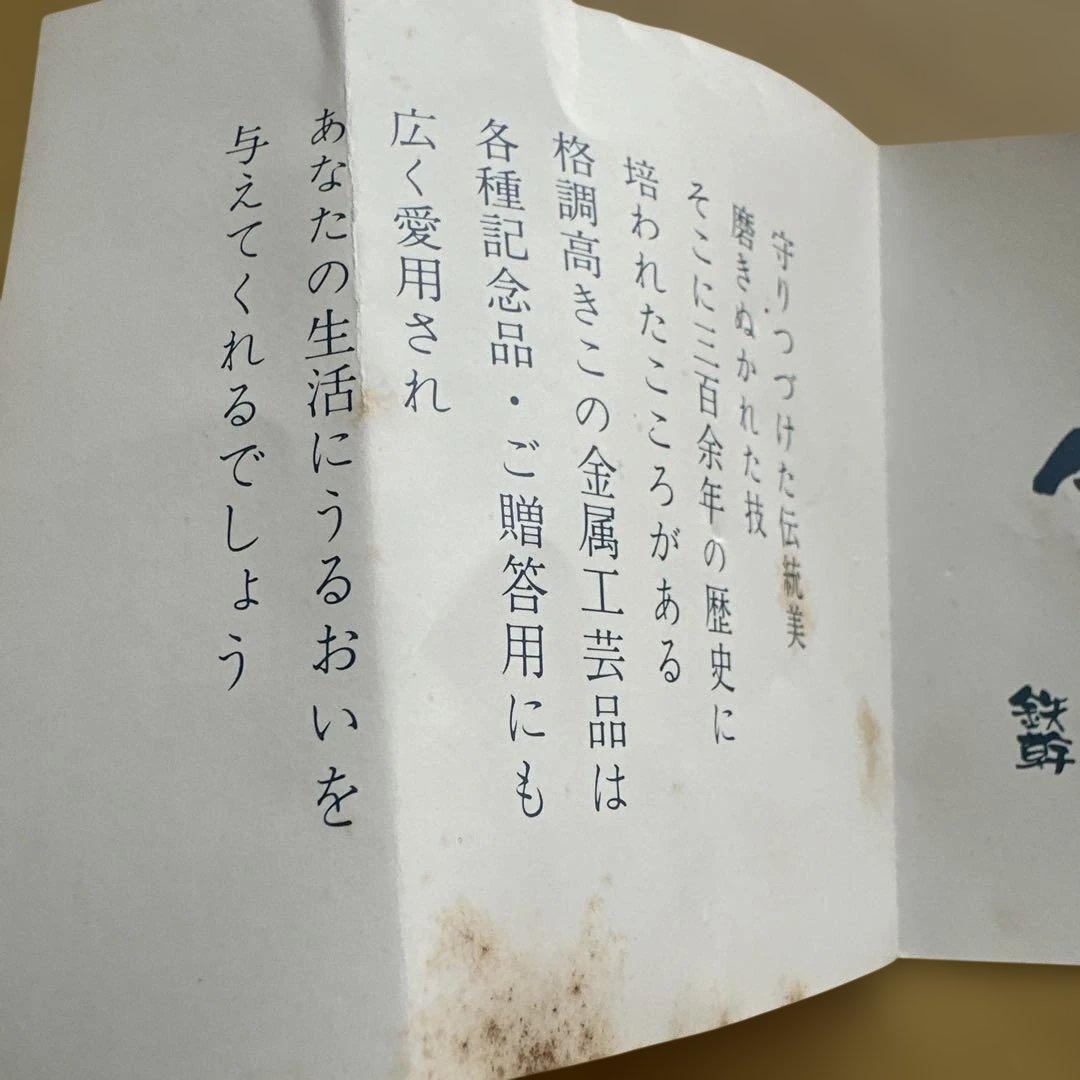 鉄幹
守りつづけた伝統美
磨きぬかれた技
そこに三百余年の歴史に
培われたこころがある
格調高きこの金属工芸品は
各種記念品・ご贈答用にも
広く愛用され
あなたの生活にうるおいを
与えてくれるでしょう